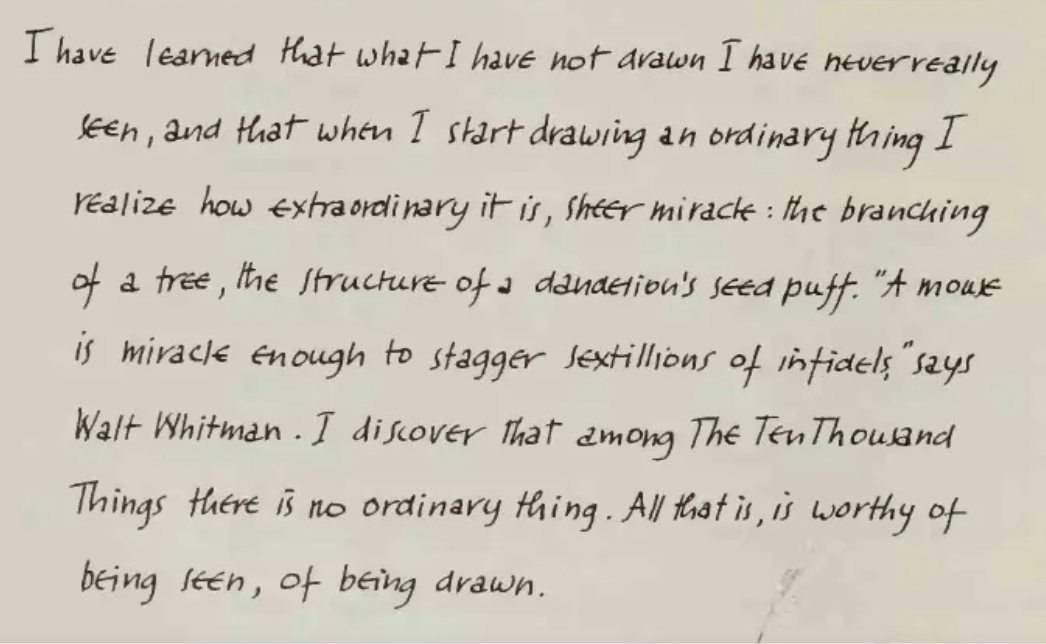 I have learned that what I have not drawn I have never really
seen, and that when I start drawing an ordinary thing I
realize how extraordinary it is, sheer miracle: the branching
of a tree, the structure of a dandelion's seed puff. "A mouse
is miracle enough to stagger sextillions of infidels," says
Walt Whitman. I discover that among The Ten Thousand
Things there is no ordinary thing. All that is, is worthy of
being seen, of being drawn.